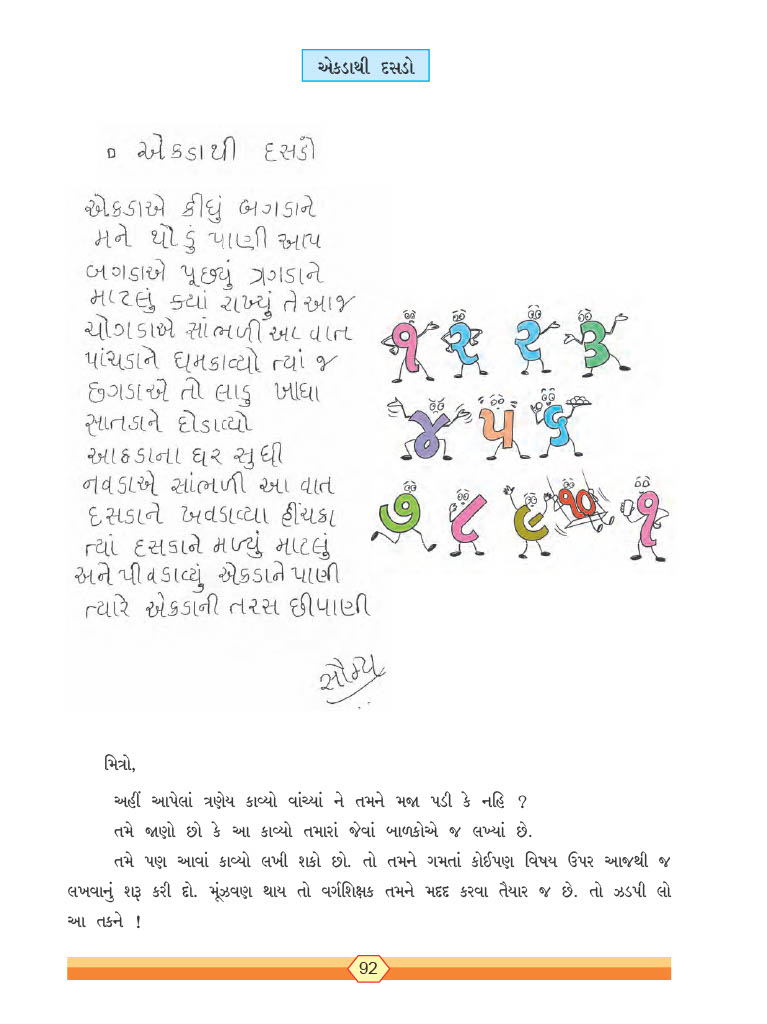 એકડાથી દસડો
▫ એકડાથી દસડો
એકડાએ કીધું બગડાને
મને થોડું પાણી આપ
બગડાએ પૂછ્યું ત્રગડાને
માટલું ક્યાં રાખ્યું તે આજ
ચોગડાએ સાંભળી આ વાત
પાંચડાને ધમકાવ્યો ત્યાં જ
છગડાએ તો લાડુ ખાધા
સાતડાને દોડાવ્યો
આઠડાના ઘર સુધી
નવડાએ સાંભળી આ વાત
દસડાને ખવડાવ્યા હીંચકા
ત્યાં દસડાને મળ્યું માટલું
અને પીવડાવ્યું એકડાને પાણી
ત્યારે એકડાની તરસ છીપાણી
સૌમ્ય
૧ ૨ ૨ ૩
૪ ૫ ૬
૭ ૮ ૯ ૧૦ ૧
મિત્રો,
અહીં આપેલાં ત્રણેય કાવ્યો વાંચ્યાં ને તમને મજા પડી કે નહિ ?
તમે જાણો છો કે આ કાવ્યો તમારાં જેવાં બાળકોએ જ લખ્યાં છે.
તમે પણ આવાં કાવ્યો લખી શકો છો. તો તમને ગમતાં કોઈપણ વિષય ઉપર આજથી જ
લખવાનું શરૂ કરી દો. મૂંઝવણ થાય તો વર્ગશિક્ષક તમને મદદ કરવા તૈયાર જ છે. તો ઝડપી લો
આ તકને !
92